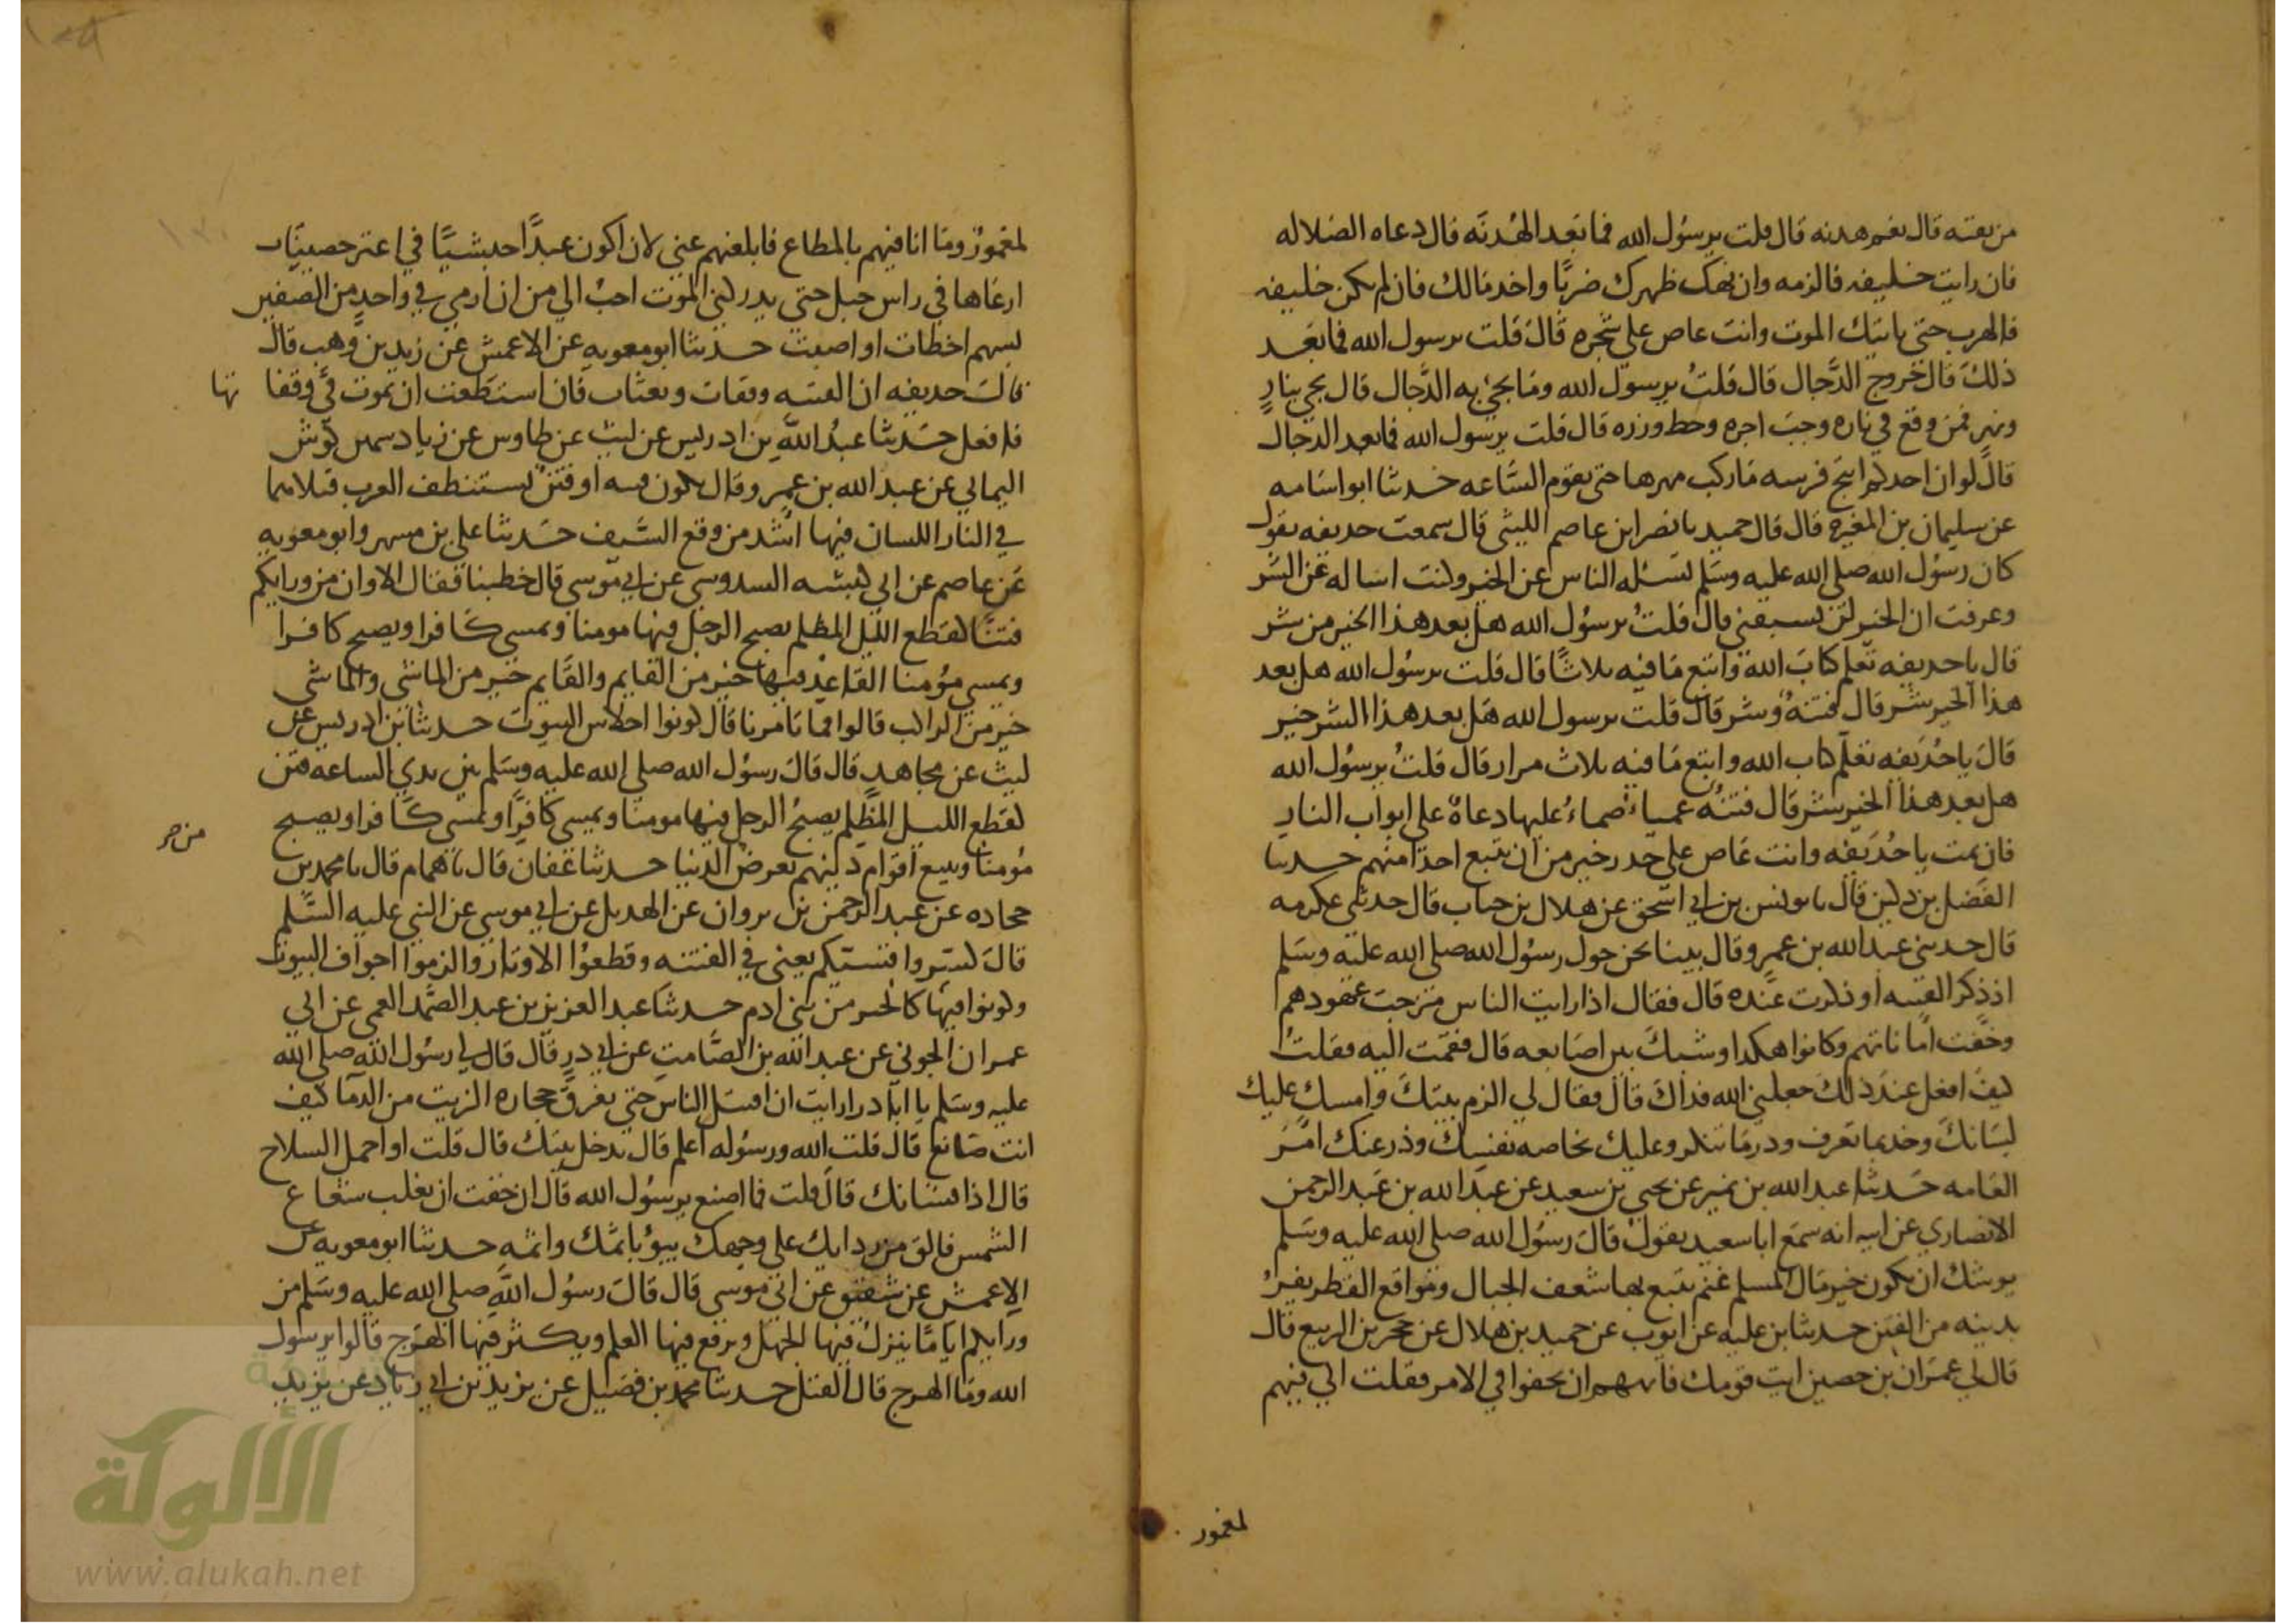 من بقيه قال نعم هدنه قال قلت يرسول الله فما بعد الهدنه قال دعاه الضلاله
فان رايت خليفه فالزمه وان نهك ظهرك ضربا واخذ مالك فان لم يكن خليفه
فالهرب حتى ياتيك الموت وانت عاض على شجره قال قلت يرسول الله فما بعد
ذلك قال خروج الدجال قال قلت يرسول الله وما يجئ به الدجال قال يجي بنار
ونهر فمن وقع في ناره وجب اجره وحط وزره قال قلت يرسول الله فما بعد الدجال
قال لو ان احدكم انتج فرسه ما ركب مهرها حتى تقوم الساعه حدثنا ابو اسامه
عن سليمان بن المغيره قال قال حميد نا نصر ابن عاصم الليثي قال سمعت حذيفه يقول
كان رسول الله صلى الله عليه وسلم يسئله الناس عن الخير وكنت اساله عن الشر
وعرفت ان الخير لن يسبقني قال قلت يرسول الله هل بعد هذا الخير من شر
قال يا حذيفه تعلم كتاب الله واتبع ما فيه ثلاثا قال قلت يرسول الله هل بعد
هذا الخير شر قال فتنة وشر قال قلت يرسول الله هل بعد هذا الشر خير
قال يا حذيفه تعلم كتاب الله واتبع ما فيه ثلاث مرار قال قلت يرسول الله
هل بعد هذا الخير شر قال فتنه عمياء صماء عليها دعاة على ابواب النار
فان تمت يا حذيفه وانت عاض على جذر خير من ان تتبع احدا منهم حدثنا
الفضل بن دكين قال نا يونس بن ابي اسحق عن هلال بن خباب قال حدثني عكرمه
قال حدثني عبد الله بن عمرو قال بينا نحن حول رسول الله صلى الله عليه وسلم
اذ ذكر الفتنه او ذكرت عنده قال فقال اذا رايت الناس مرجت عهودهم
وخفت اماناتهم وكانوا هكذا وشبك بين اصابعه قال فقمت اليه فقلت
كيف افعل عند ذلك جعلني الله فداك قال فقال لي الزم بيتك وامسك عليك
لسانك وخذ بما تعرف وذر ما تنكر وعليك بخاصه نفسك وذر عنك امر
العامه حدثنا عبد الله بن نمير عن يحيى بن سعيد عن عبد الله بن عبد الرحمن
الانصاري عن ابيه انه سمع ابا سعيد يقول قال رسول الله صلى الله عليه وسلم
يوشك ان يكون خير مال المسلم غنم يتبع بها شعف الجبال ومواقع القطر يفر
بدينه من الفتن حدثنا بن عليه عن ايوب عن حميد بن هلال عن حجير بن الربيع قال
قال لي عمران بن حصين ايت قومك فانههم ان يخفوا في الامر فقلت اني فيهم
لمغمور
لمغمور وما انا فيهم بالمطاع فابلغهم عني لان اكون عبدا حبشيا في اعنز حصينيات
ارعاها في راس جبل حتى يدركني الموت احب الي من ان ارمي في واحد من الصفين
بسهم اخطات او اصبت حدثنا ابو معويه عن الاعمش عن زيد بن وهب قال
قال حذيفه ان الفتنه وقفات وبعثات فان استطعت ان تموت في وقفا تها
فافعل حدثنا عبد الله بن ادريس عن ليث عن طاوس عن زياد سمين كوش
اليماني عن عبد الله بن عمرو قال يكون فتنه او فتن تستنظف العرب قتلاها
في النار اللسان فيها اشد من وقع السيف حدثنا علي بن مسهر وابو معويه
عن عاصم عن ابي كبشه السدوسي عن ابي موسى قال خطبنا فقال الا وان من ورايكم
فتنا كقطع الليل المظلم يصبح الرجل فيها مومنا ويمسي كافرا ويصبح كافرا
ويمسي مؤمنا القاعد فيها خير من القايم والقايم خير من الماشي والماشي
خير من الراكب قالوا فما تامرنا قال كونوا احلاس البيوت حدثنا بن ادريس عن
ليث عن مجاهد قال قال رسول الله صلى الله عليه وسلم بين يدي الساعه فتن
كقطع الليل المظلم يصبح الرجل فيها مومنا ويمسي كافرا ويمسي كافرا ويصبح
مؤمنا ويبيع اقوام دينهم بعرض الدنيا حدثنا عفان قال نا همام قال نا محمد بن
جحاده عن عبد الرحمن بن ثروان عن الهديل عن ابي موسى عن النبي عليه السلم
قال كسروا قسيكم يعني في الفتنه وقطعوا الاوتار والزموا اجواف البيوت
وكونوا فيها كالخير من بني ادم حدثنا عبد العزيز بن عبد الصمد العمي عن ابي
عمران الجوني عن عبد الله بن الصامت عن ابي ذر قال قال لي رسول الله صلى الله
عليه وسلم يا ابا ذر ارايت ان اقتتل الناس حتى تغرق حجاره الزيت من الدما كيف
انت صانع قال قلت الله ورسوله اعلم قال تدخل بيتك قال قلت او احمل السلاح
قال اذا قال قلت فما اصنع يرسول الله قال ان خفت ان يغلب شعاع
الشمس فالق من ردايك على وجهك يبؤ باثمك واثمه حدثنا ابو معويه عن
الاعمش عن شقيق عن ابي موسى قال قال رسول الله صلى الله عليه وسلم من
ورايكم اياما ينزل فيها الجهل ويرفع فيها العلم ويكثر فيها الهرج قالوا يرسول
الله وما الهرج قال القتل حدثنا محمد بن فضيل عن يزيد بن ابي زياد عن يزيد
الألوكة
www.alukah.net